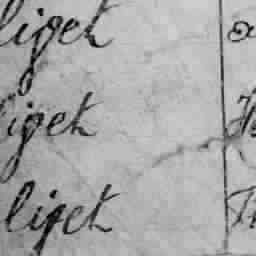 liget
liget
liget